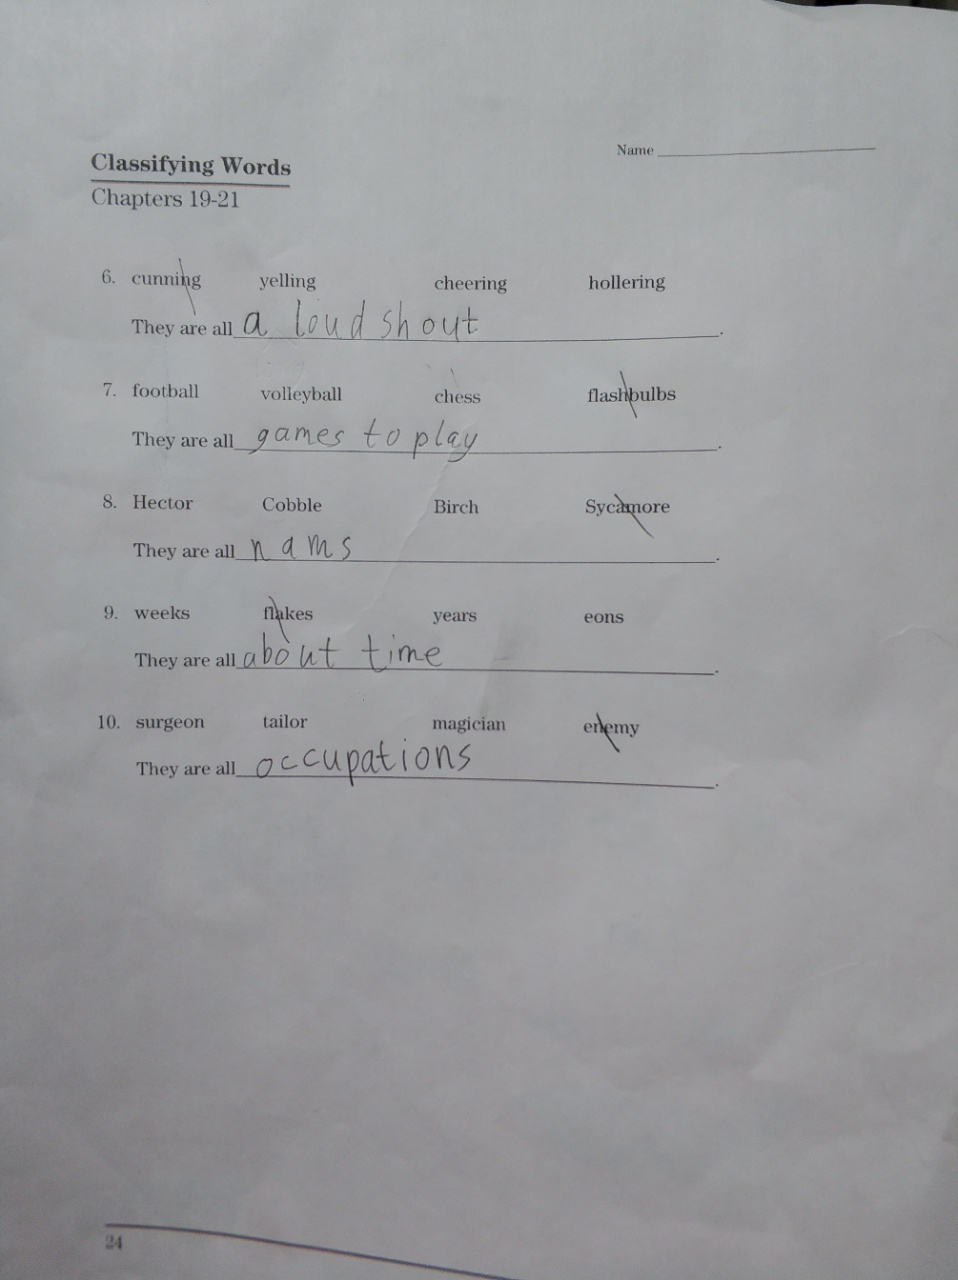 Name
Classifying Words
Chapters 19-21
6. cunning yelling cheering hollering
They are all a loud shout.
7. football volleyball chess flashbulbs
They are all games to play.
8. Hector Cobble Birch Sycamore
They are all nams.
9. weeks flakes years eons
They are all about time.
10. surgeon tailor magician enemy
They are all occupations.
24